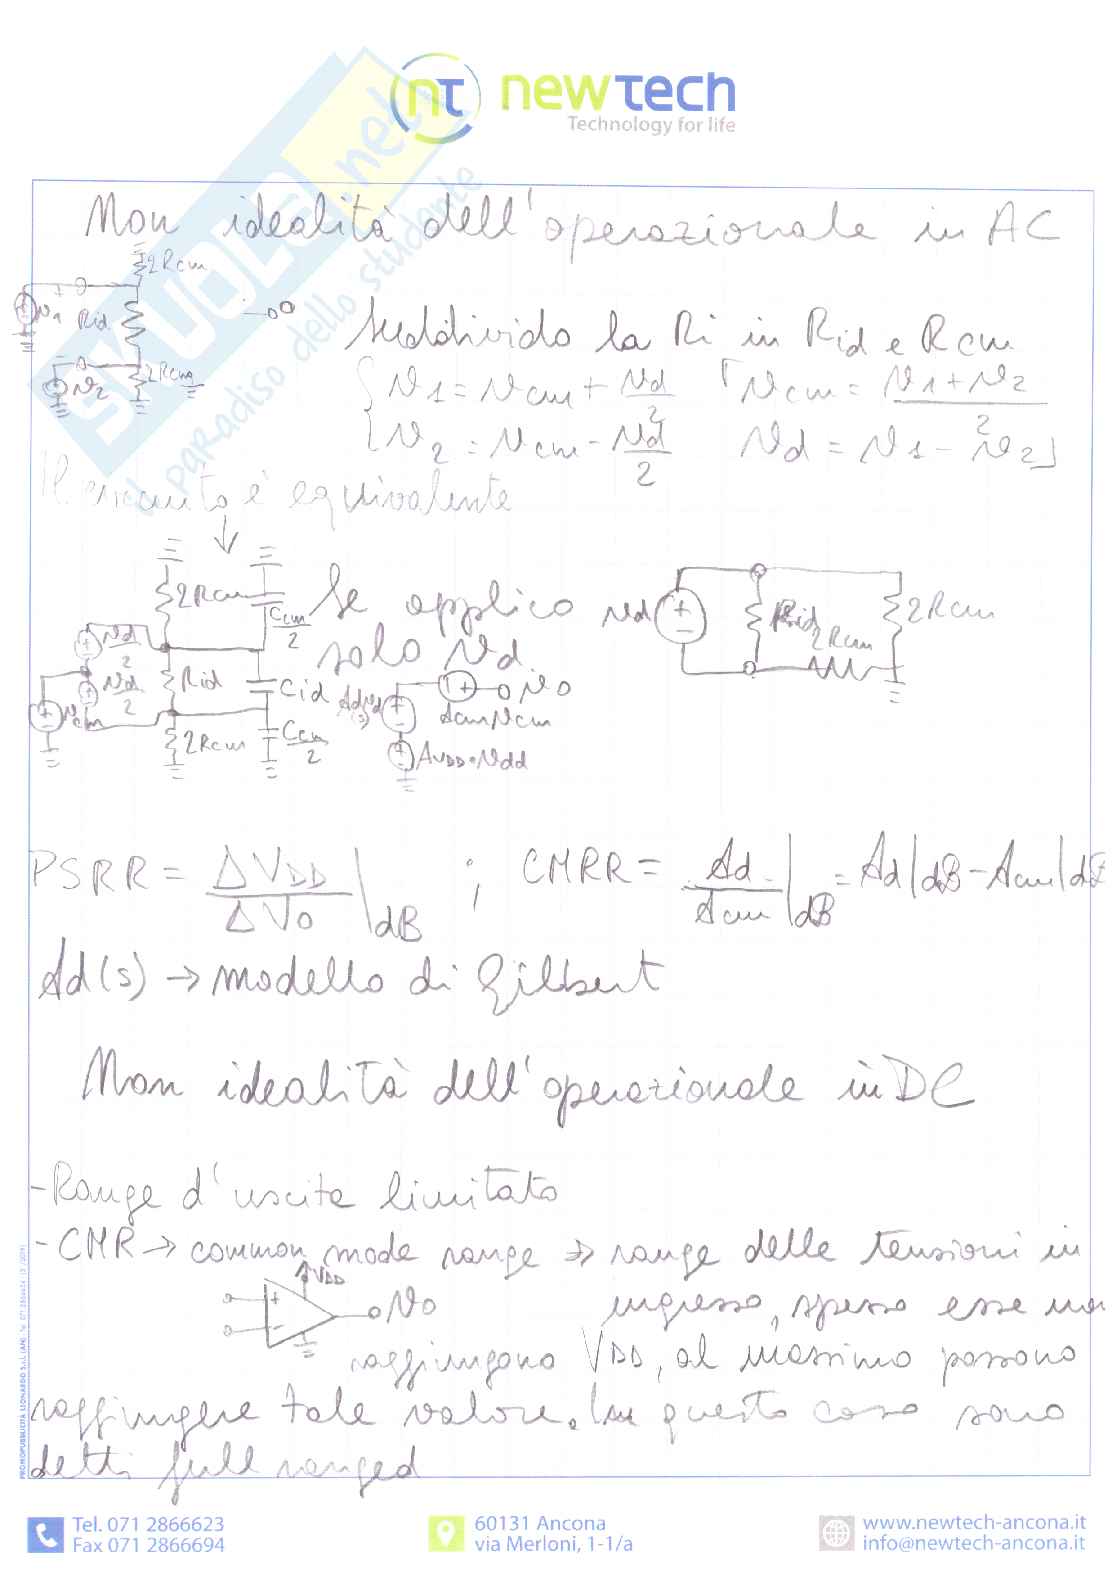 nt newtech
Technology for life
SKUOLA.net
il paradiso dello studente
Non idealità dell'operazionale in AC
2Rcm
+
v1 Rid
v2 2Rcm
Suddivido la Ri in Rid e Rcm
v1 = vcm + vd/2 vcm = v1+v2/2
v2 = vcm - vd/2 vd = v1 - v2
Il circuito è equivalente
2Rcm Ccm/2
vd/2
vd/2 Rid Cid
vcm
2Rcm Ccm/2
Se applico
solo vd.
Ad(s)vd
Acm vcm
vo
AVDD·vdd
vd Rid 2Rcm
2Rcm
PSRR = ΔVDD/ΔVo |dB ; CMRR = Ad/Acm |dB = Ad|dB - Acm|dB
Ad(s) → modello di Gilbert
Non idealità dell'operazionale in DC
- Range d'uscita limitato
- CMR → common mode range ⇒ range delle tensioni in
VDD
+
-
vo
ingresso, spesso esse non
raggiungono VDD, al massimo possono
raggiungere tale valore. In questo caso sono
detti full ranged
PROMOPUBBLICITÀ LEONARDO S.r.l. (AN)
Tel. 071 2866623
Fax 071 2866694
60131 Ancona
via Merloni, 1-1/a
www.newtech-ancona.it
info@newtech-ancona.it